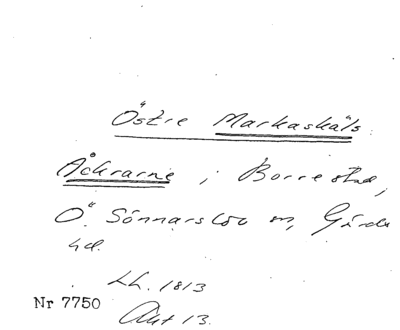 Östre Markaskåls
Åckrarne i Borrestad,
Ö. Sönnarslöv sn, Gärds
hd.
LH. 1813
Akt 13.
Nr 7750